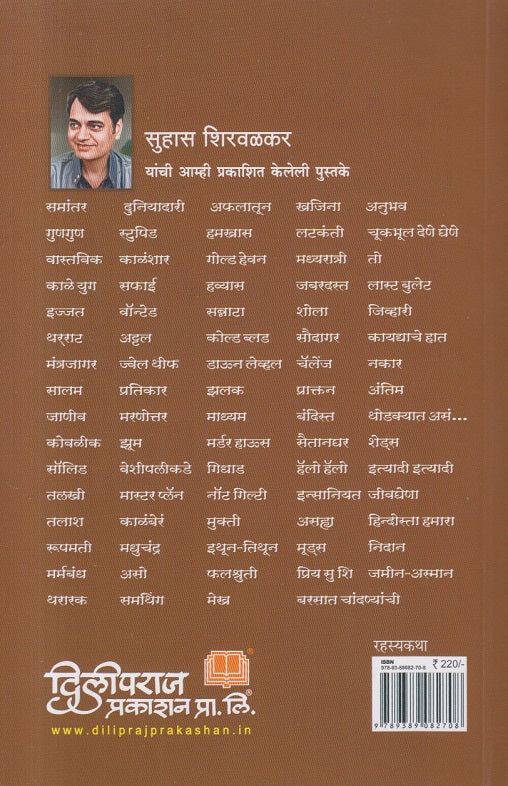 सुहास शिरवळकर
यांची आम्ही प्रकाशित केलेली पुस्तके
समांतर दुनियादारी अफलातून खजिना अनुभव
गुणगुण स्टुपिड हमखास लटकंती चूकभूल देणे घेणे
वास्तविक काळंशार गोल्ड हेवन मध्यरात्री तो
काळे युग सफाई हव्यास जबरदस्त लास्ट बुलेट
इज्जत वॉन्टेड सन्नाटा शोला जिव्हारी
थर्राट अट्टल कोल्ड ब्लड सौदागर कायद्याचे हात
मंत्रजागर ज्वेल थीफ डाऊन लेव्हल चॅलेंज नकार
सालम प्रतिकार झलक प्राक्तन अंतिम
जाणीव मरणोत्तर माध्यम बंदिस्त थोडक्यात असं...
कोवळीक झूम मर्डर हाऊस सैतानघर शेड्स
सॉलिड वेशीपलीकडे गिधाड हॅलो हॅलो इत्यादी इत्यादी
तलखी मास्टर प्लॅन नॉट गिल्टी इन्सानियत जीवघेणा
तलाश काळंबेरं मुक्ती असह्य हिन्दोस्ता हमारा
रूपमती मधुचंद्र इथून-तिथून मूड्स निदान
मर्मबंध असो फलश्रुती प्रिय सु शि जमीन-अस्मान
थरारक समथिंग मेख बरसात चांदण्यांची
रहस्यकथा
ISBN
978-93-89082-70-8
₹ 220/-
9 789389 082708
दिलीपराज
प्रकाशन प्रा. लि.
www.diliprajprakashan.in